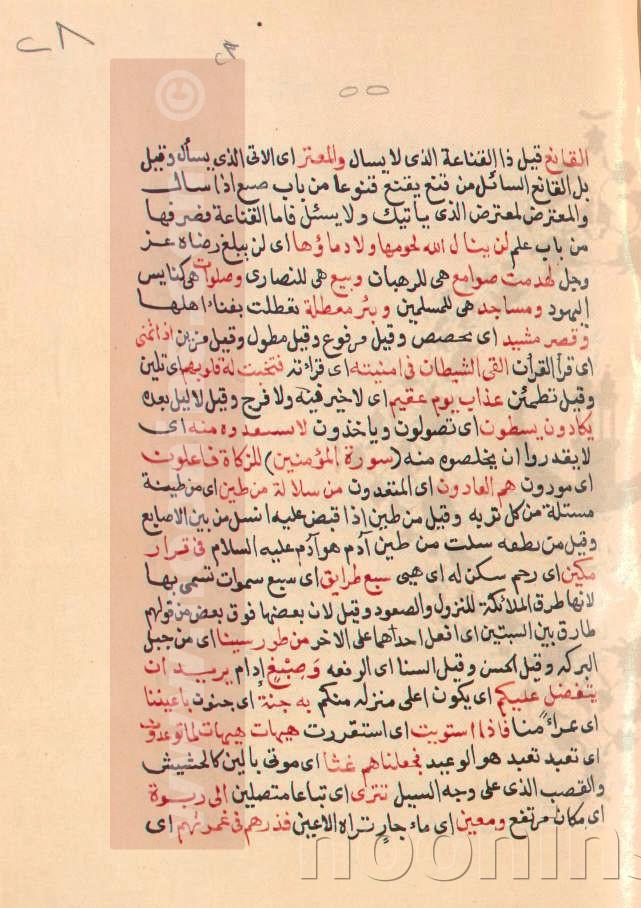 ٢٨
٢٨
٥٥
القانع قيل ذا القناعة الذى لا يسال والمعتر اى الاتى الذى يسأل وقيل
بل القانع السائل من قنع يقنع قنوعا من باب صنع اذا سال
والمعترض لمعترض الذى ياتيك ولا يسئل فاما القناعة فصرفها
من باب علم لن ينال الله لحومها ولا دماؤها اى لن يبلغ رضاه عز
وجل لهدمت صوامع هى للرهبان وبيع هى للنصارى وصلوات هى كنايس
اليهود ومساجد هى للمسلمين وبئر معطلة تعطلت بفناء اهلها
وقصر مشيد اى بحصص وقيل مرفوع وقيل مطول وقيل مزين اذا تمنى
اى قرأ القرأن القى الشيطان فى امنيته اى قرائته فتخبت له قلوبهم اى تلين
وقيل تطمئن عذاب يوم عقيم اى لا خير فيه ولا فرج وقيل لا ليل بعده
يكادون يسطون اى تصولون وياخذون لا يستنقذوه منه اى
لا يقدروا ان يخلصوه منه (سورة المؤمنين) للزكاة فاعلون
اى مودون هم العادون اى المتعدون من سلالة من طين اى من طينة
مستلة من كل تربه وقيل من طين اذا قبض عليه انسل من بين الاصابع
وقيل من نطفه سلت من طين آدم هو آدم عليه السلام فى قرار
مكين اى رحم سكن له اى هيى سبع طرايق اى سبع سموات تسمى بها
لانها طرق الملائكة للنزول والصعود وقيل لان بعضها فوق بعض من قولهم
طارق بين السبتين اى انعل احداهما على الاخر من طور سينا اى من جبل
البركه وقيل الحسن وقيل السنا اى الرفعه وصبغ إدام يريد ان
يتفضل عليكم اى يكون اعلى منزله منكم به جنة اى جنون باعيننا
اى منا فاذا استويت اى استقررت هيهات هيهات لما توعدون
اى تعبد تعبد هو الوعيد فجعلناهم غثا اى موتى بالين كالحشيش
والقصب الذى على وجه السيل تترى اى تباعا متصلين الى ربوة
اى مكان مرتفع ومعين اى ماء جار تراه الاعين فذرهم فى غمرتهم اى
©
noonins